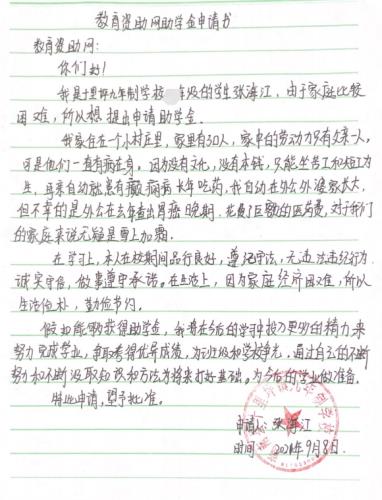 教育资助网助学金申请书
教育资助网：
你们好！
我是十里坪九年制学校 年级的学生张海江，由于家庭比较
困难，所以想提出申请助学金。
我家住在一个小村庄里，家里有3口人，家中的劳动力只有父亲一人，
可是他们一直有病在身，因为没有文化，没有本钱，只能坐苦工和短工为
生，母亲自幼就患有癫痫病长年吃药，我自幼在外公外婆家长大，
但不幸的是外公在去年查出胃癌晚期，花费了巨额的医药费，对于我们
的家庭来说无疑是雪上加霜。
在学习上，本人在校期间品行良好，遵纪守法，无违法违纪行为，
诚实守信，做事遵守承诺。在生活上，因为家庭经济困难，所以
生活俭朴，勤俭节约。
假如能够获得助学金，我将在今后的学习中投入更多的精力来
努力完成学业，争取考得优异成绩，为班级和学校争光，通过自己的不断
努力和不断汲取知识和方法为将来打好基础。为今后的学业做准备。
特此申请，望予批准。
申请人：张海江
时间：2021年9月8日.